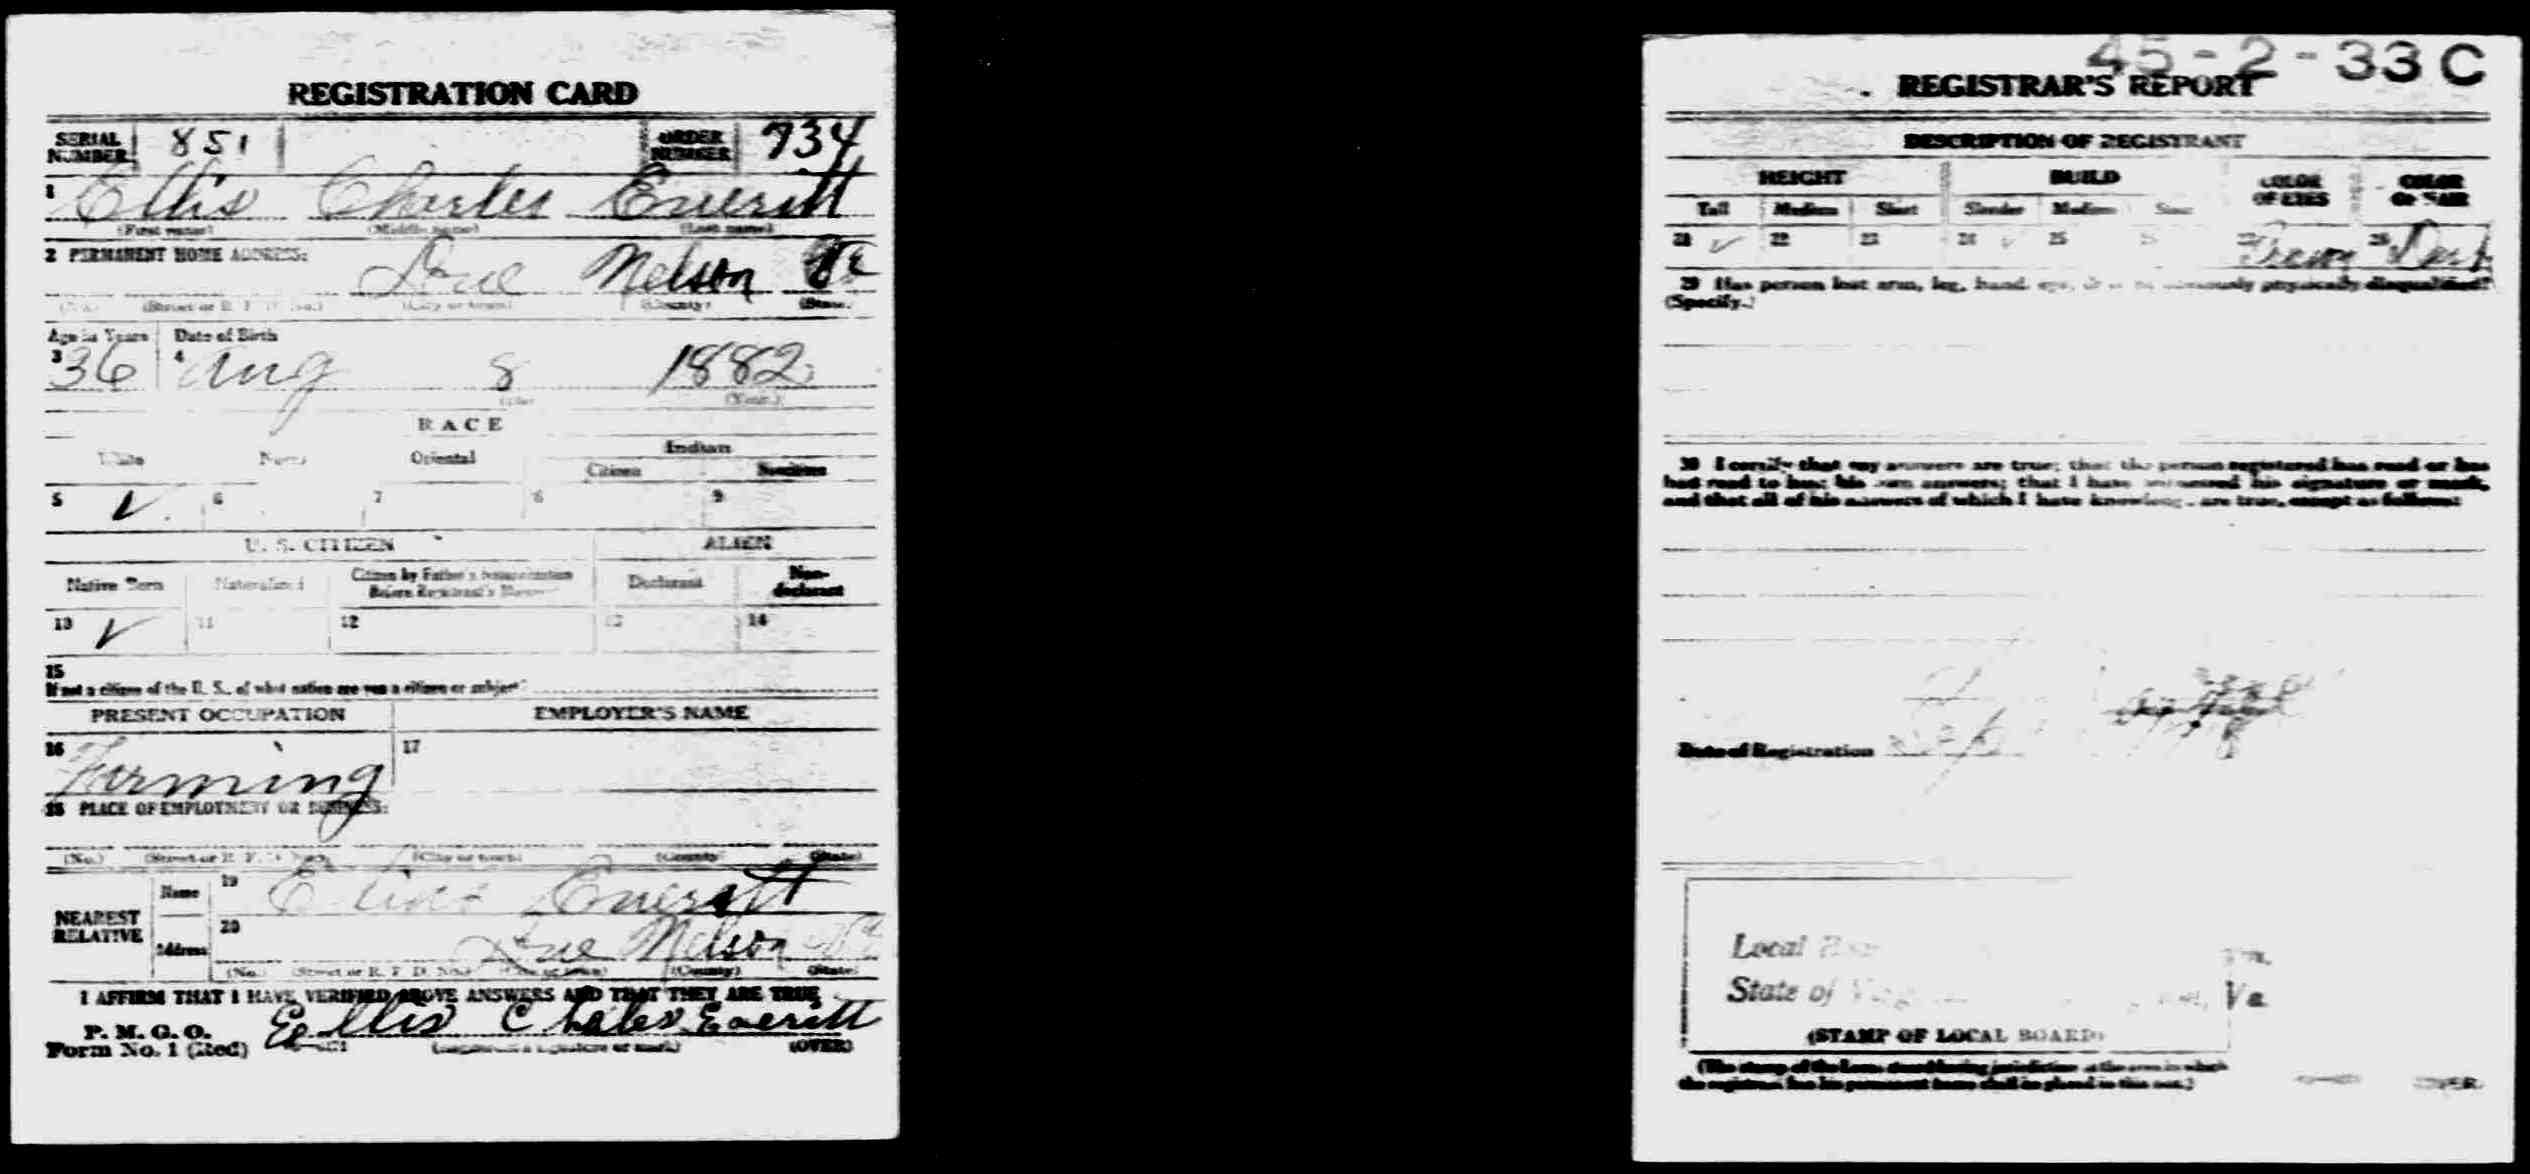 REGISTRATION CARD
SERIAL NUMBER 851 ORDER NUMBER 734
1 Ellis Charles Everitt
(First name) (Middle name) (Last name)
2 PERMANENT HOME ADDRESS: Nelson Va
(No.) (Street or R. F. D. No.) (City or town) (County) (State)
Age in Years Date of Birth
3 36 4 Aug 8 1882
(Day) (Year.)
RACE
White Negro Oriental Indian
Citizen Noncitizen
5 ✓ 6 7 8 9
U. S. CITIZEN ALIEN
Native Born Naturalized Citizen by Father's Naturalization Before Registrant's Majority Declarant Non-declarant
10 ✓ 11 12 13 14
15
If not a citizen of the U. S., of what nation are you a citizen or subject?
PRESENT OCCUPATION EMPLOYER'S NAME
16 Farming 17
18 PLACE OF EMPLOYMENT OR BUSINESS:
(No.) (Street or R. F. D. No.) (City or town) (County) (State)
NEAREST RELATIVE Name 19 Everett
Address 20 Nelson Va
(No.) (Street or R. F. D. No.) (City or town) (County) (State)
I AFFIRM THAT I HAVE VERIFIED ABOVE ANSWERS AND THAT THEY ARE TRUE
P. M. G. O.
Form No. 1 (Red) Ellis Chales Everitt
(Registrant's signature or mark) (OVER)
45-2-33 C
REGISTRAR'S REPORT
DESCRIPTION OF REGISTRANT
HEIGHT BUILD COLOR OF EYES COLOR OF HAIR
Tall Medium Short Slender Medium Stout
21 ✓ 22 23 24 ✓ 25 26 27 Brown 28 Dark
29 Has person lost arm, leg, hand, eye, or is he obviously physically disqualified?
(Specify.)
30 I certify that my answers are true; that the person registered has read or has
had read to him his own answers; that I have witnessed his signature or mark,
and that all of his answers of which I have knowledge are true, except as follows:
Date of Registration
Local
State of Va
(STAMP OF LOCAL BOARD)
(The stamp of the Local Board having jurisdiction of the area in which
the registrant has his permanent home shall be placed in this box.)